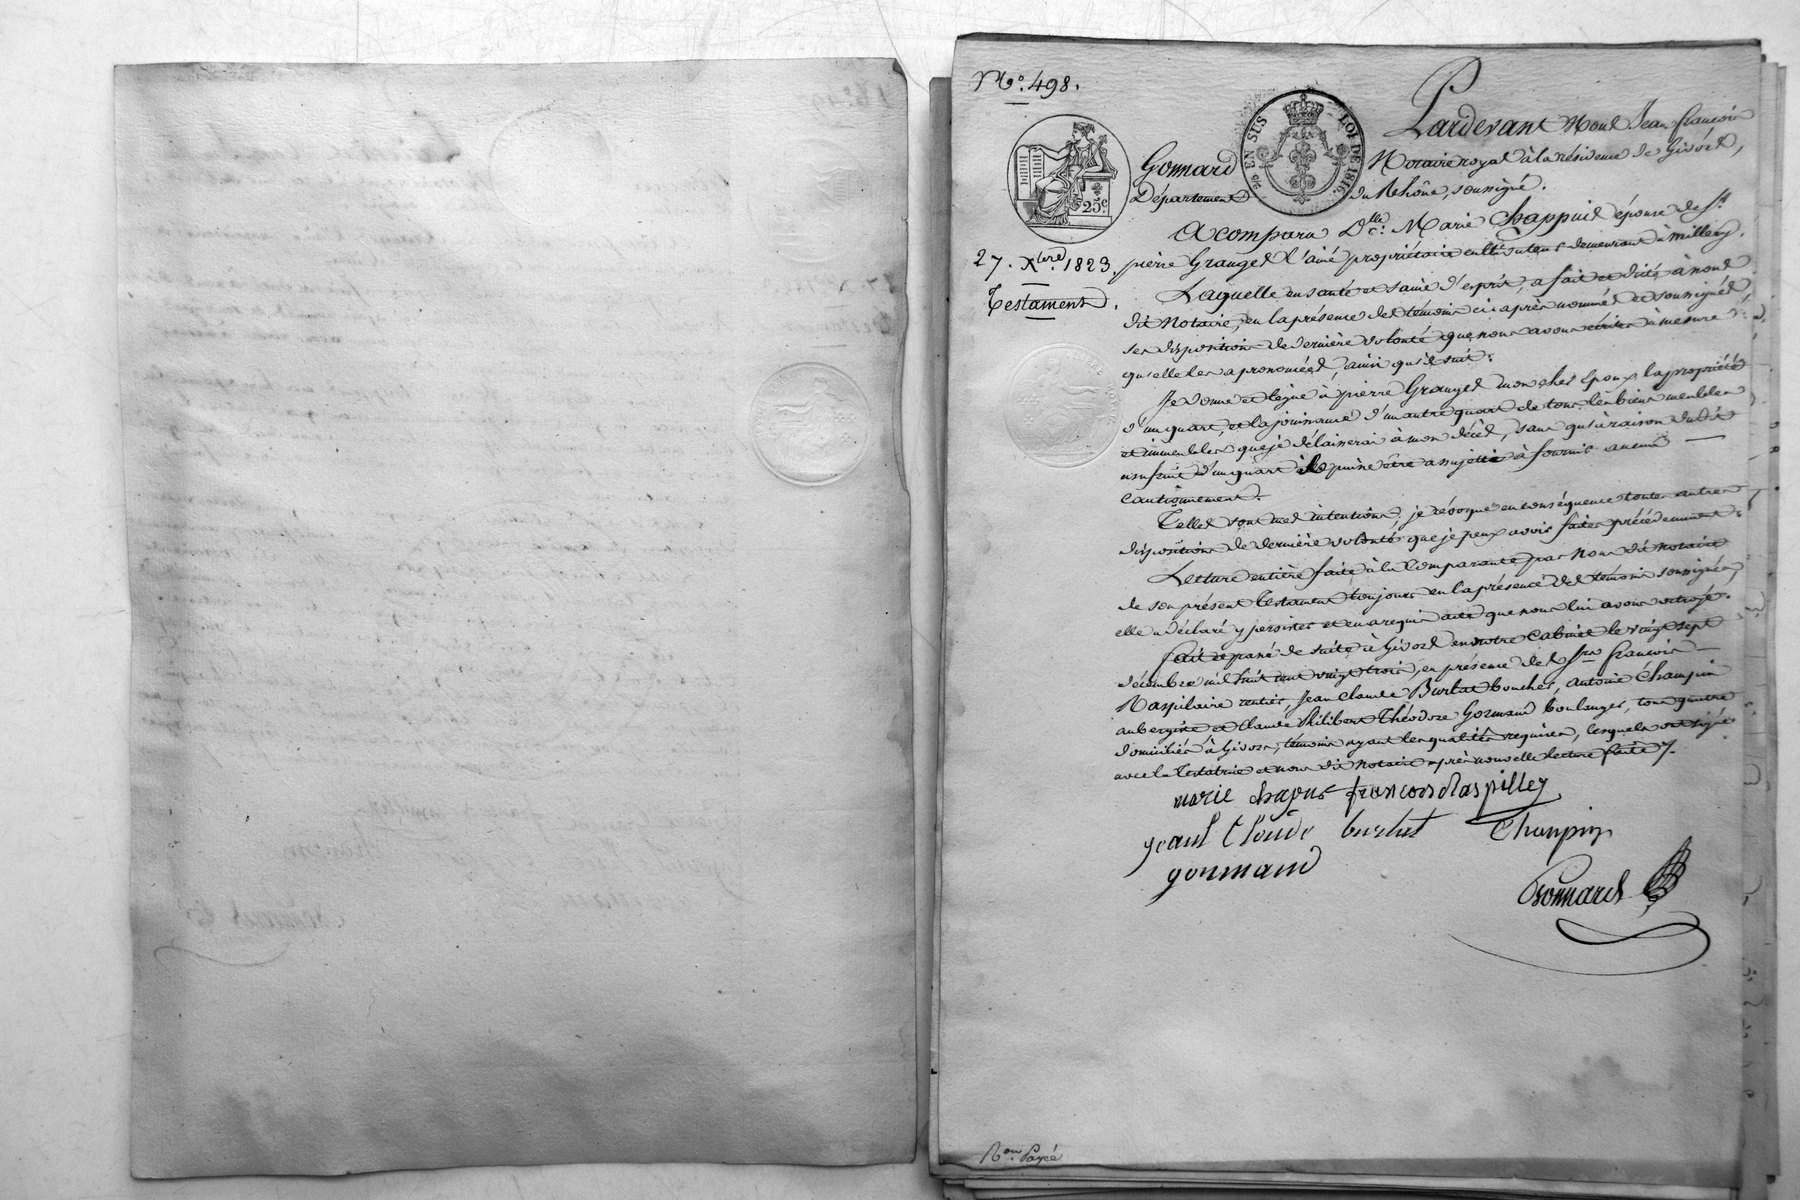 N.º 498.
EN SUS
LOI DE 1816.
25.c
Pardevant Nous Jean françois
Gonnard Notaire royal à la résidence de Givors,
Département du Rhône, soussigné.
A comparu D.lle Marie Chappuis épouse de S.r
27. Xbre 1823. pierre Granget l'ainé propriétaire cultivateur demeurant à Millery.
Testament.
Laquelle en santé et saine d'esprit, a fait et dicté à nous
dit Notaire, en la présence des témoins ci-après nommés et soussignés,
ses dispositions de dernière volonté que nous avons écrites à mesure
qu'elle les a prononcées, ainsi qu'il suit.
Je donne et lègue à pierre Granget mon cher Epoux la propriété
d'un quart, et la jouissance d'un autre quart de tous les biens meubles
et immeubles que je délaisserai à mon décès, sans qu'à raison du dit
usufruit d'un quart il puisse être assujetti à fournir aucun
cautionnement.
Telles sont mes intentions, je révoque en conséquence toutes autres
dispositions de dernière volonté que je peux avoir faites précédemment.
Lecture entière faite à la Comparante par Nous dit notaire
de son présent Testament toujours en la présence des témoins soussignés,
elle a déclaré y persister et en a requis acte que nous lui avons octroyé.
fait et passé de suite à Givors en notre Cabinet le vingt sept
décembre mil huit cent vingt trois, en présence des Srs françois
Raspilaire rentier, Jean Claude Burlat boucher, Antoine Champin
aubergiste et Claude Philibert Théodore Gormand boulanger, tous quatre
domiciliés à Givors, témoins ayant les qualités requises, lesquels ont signé
avec la Testatrice et nous dit Notaire après nouvelle lecture faite.
marie chapuis françois Raspilley
jean Cloude burlat Champin
gormand
Gonnard